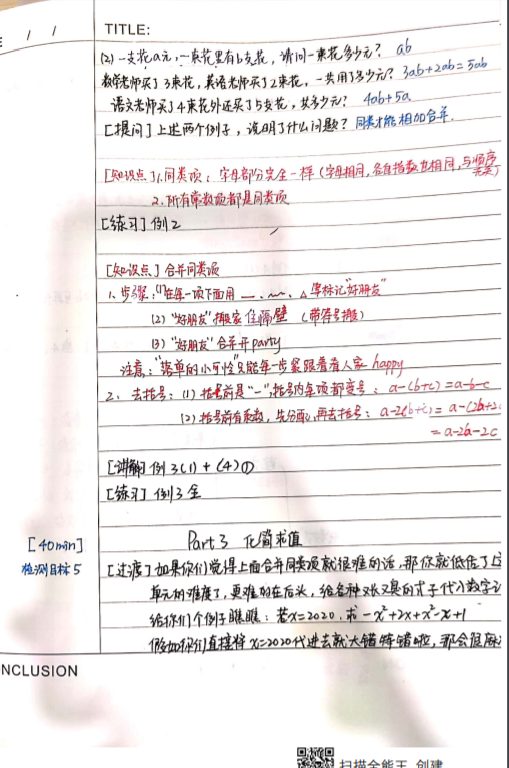 / /
TITLE:
(2) 一支花a元,一束花里有b支花,请问一束花多少元? ab
数学老师买了3束花,英语老师买了2束花,一共用了多少元? 3ab+2ab=5ab
语文老师买了4束花外还买了5支花,共多少元? 4ab+5a
[提问] 上述两个例子,说明了什么问题? 同类才能相加合并.
[知识点] 1.同类项:字母部分完全一样(字母相同,各自指数也相同,与顺序无关)
2.所有常数项都是同类项
[练习] 例2
[知识点] 合并同类项
1、步骤:(1)在每一项下面用 —、﹏、△ 等标记"好朋友"
(2)"好朋友"搬家住隔壁(带符号搬)
(3)"好朋友"合并开party
注意:"落单的小可怜"只能每一步紧跟着看人家happy
2、去括号:(1)括号前是"-",括号内每项都变号:a-(b+c)=a-b-c
(2)括号前有系数,先分配,再去括号:a-2(b+c)=a-(2b+2c
=a-2b-2c
[讲解] 例3(1)+(4)①
[练习] 例3全
Part 3 化简求值
[40min]
检测目标5
[过渡] 如果你们觉得上面合并同类项就很难的话,那你就低估了这
单元的难度了,更难的在后头,给各种又长又臭的式子代入数字
给你们个例子瞧瞧:若x=2020,求-x²+2x+x²-x+1
假如你们直接将x=2020代进去就大错特错啦,那会很麻
NCLUSION
扫描全能王 创建